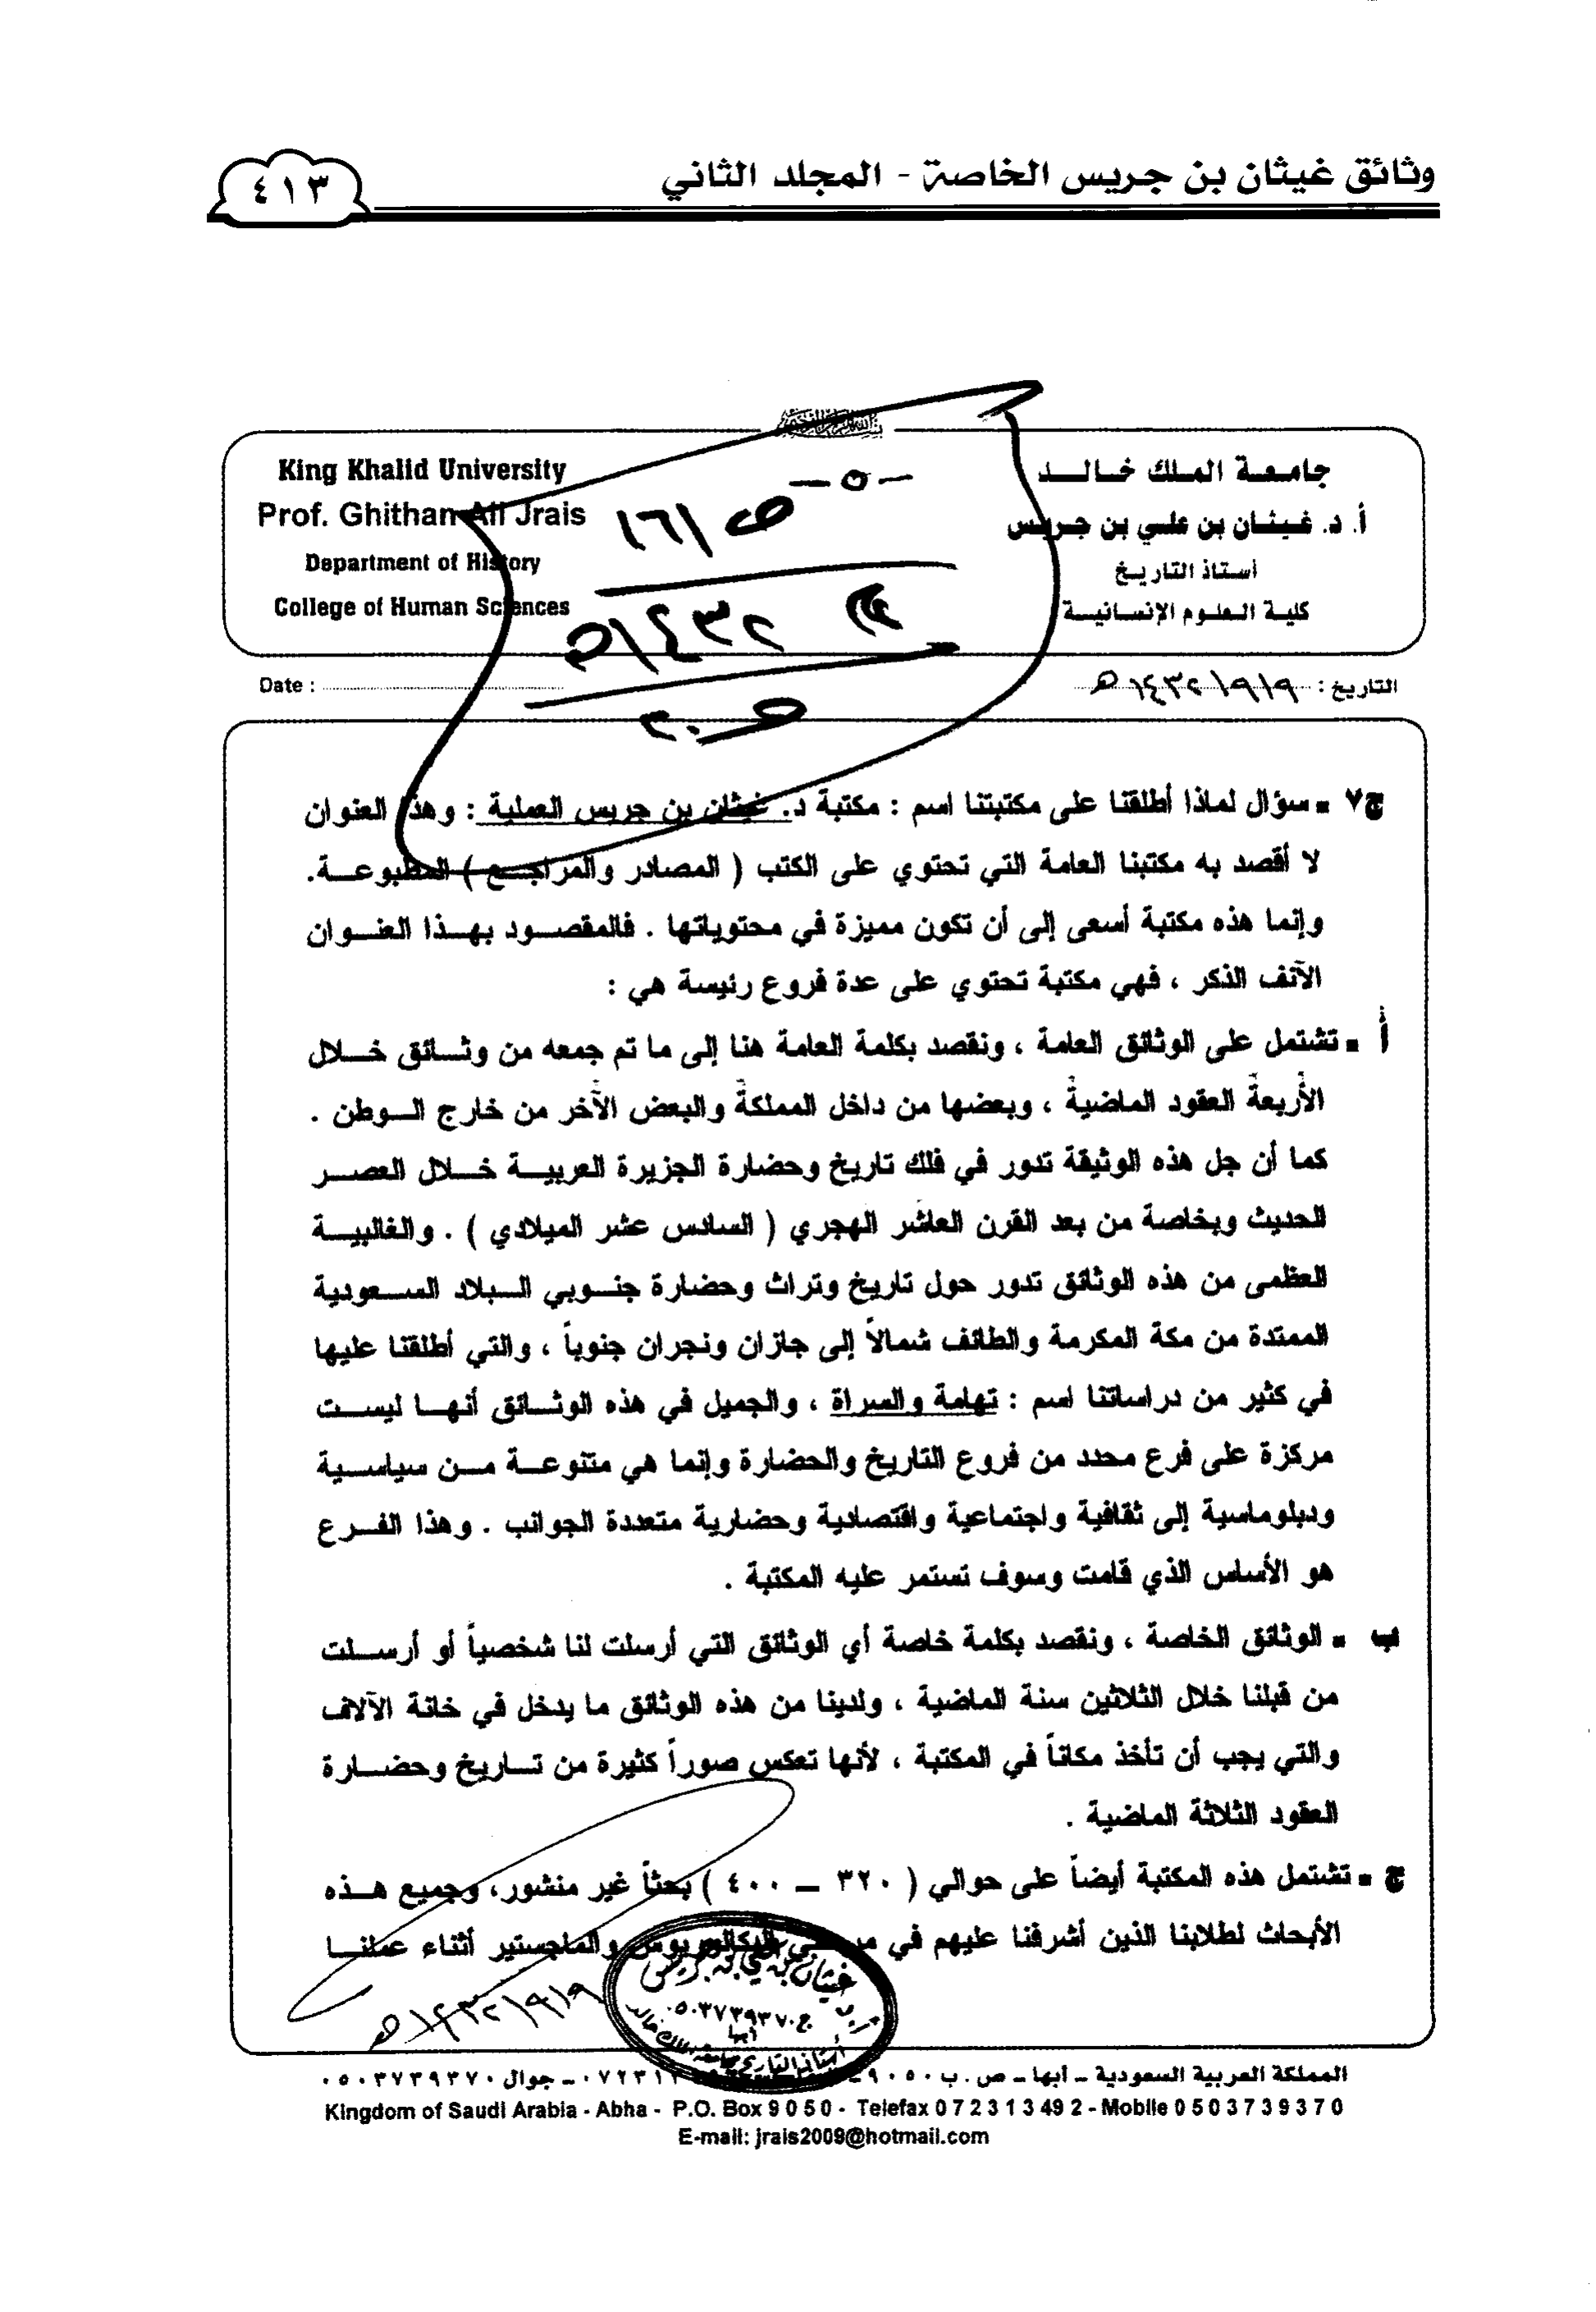 وثائق غيثان بن جريس الخاصة - المجلد الثاني
٤١٣
جامعة الملك خالد
أ. د. غيثان بن علي بن جريس
أستاذ التاريخ
كلية العلوم الإنسانية
King Khalid University
Prof. Ghithan Ali Jrais
Department of History
College of Human Sciences
-٥-
ص/١٦
٤٣٢/هـ
التاريخ : ١٤٣٢/٩/٩ هـ
Date :
ج٧ - سؤال لماذا أطلقنا على مكتبتنا اسم : مكتبة د. غيثان بن جريس العملية : وهذا العنوان
لا أقصد به مكتبنا العامة التي تحتوي على الكتب ( المصادر والمراجع ) المطبوعة.
وإنما هذه مكتبة أسعى إلى أن تكون مميزة في محتوياتها . فالمقصود بهذا العنوان
الآنف الذكر ، فهي مكتبة تحتوي على عدة فروع رئيسة هي :
أ - تشتمل على الوثائق العامة ، ونقصد بكلمة العامة هنا إلى ما تم جمعه من وثائق خلال
الأربعة العقود الماضية ، وبعضها من داخل المملكة والبعض الآخر من خارج الوطن .
كما أن جل هذه الوثيقة تدور في فلك تاريخ وحضارة الجزيرة العربية خلال العصر
الحديث وبخاصة من بعد القرن العاشر الهجري ( السادس عشر الميلادي ) . والغالبية
العظمى من هذه الوثائق تدور حول تاريخ وتراث وحضارة جنوبي البلاد السعودية
الممتدة من مكة المكرمة والطائف شمالاً إلى جازان ونجران جنوباً ، والتي أطلقنا عليها
في كثير من دراساتنا اسم : تهامة والسراة ، والجميل في هذه الوثائق أنها ليست
مركزة على فرع محدد من فروع التاريخ والحضارة وإنما هي متنوعة من سياسية
ودبلوماسية إلى ثقافية واجتماعية واقتصادية وحضارية متعددة الجوانب . وهذا الفرع
هو الأساس الذي قامت وسوف تستمر عليه المكتبة .
ب - الوثائق الخاصة ، ونقصد بكلمة خاصة أي الوثائق التي أرسلت لنا شخصياً أو أرسلت
من قبلنا خلال الثلاثين سنة الماضية ، ولدينا من هذه الوثائق ما يدخل في خانة الآلاف
والتي يجب أن تأخذ مكاناً في المكتبة ، لأنها تعكس صوراً كثيرة من تاريخ وحضارة
العقود الثلاثة الماضية .
ج - تشتمل هذه المكتبة أيضاً على حوالي ( ٣٢٠ – ٤٠٠ ) بحثاً غير منشور، وجميع هذه
الأبحاث لطلابنا الذين أشرفنا عليهم في البكالوريوس والماجستير أثناء عملنا
١٤٣٢/٩/٩ هـ
غيثان بن علي بن جريس
ج. ٠٥٠٣٧٣٩٣٧٠
أبها
أستاذ التاريخ بجامعة الملك خالد
المملكة العربية السعودية – أبها – ص. ب ٩٠٥٠ – جوال ٠٥٠٣٧٣٩٣٧٠
Kingdom of Saudi Arabia - Abha - P.O. Box 9 0 5 0 - Telefax 0 7 2 3 1 3 49 2 - Mobile 0 5 0 3 7 3 9 3 7 0
E-mail: jrais2009@hotmail.com